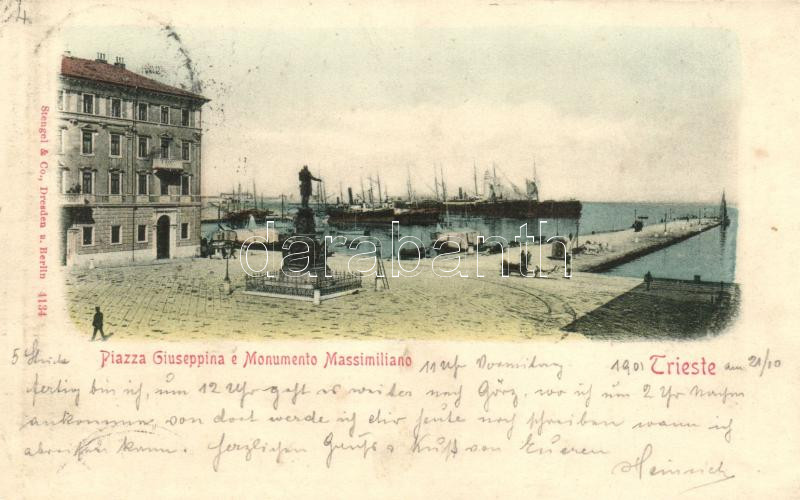 Stengel & Co., Dresden u. Berlin 4134
darabanth
Piazza Giuseppina e Monumento Massimiliano
Trieste
11 Uhr Vormittag 1901 am 21/10
fertig bin ich, um 12 Uhr geht es weiter nach Görz, wo ich um 2 Uhr Nachm
ankomme, von dort werde ich dir heute noch schreiben wann ich
abreisen kann. Herzlichen Gruß & Kuß von Eueren
Heinrich